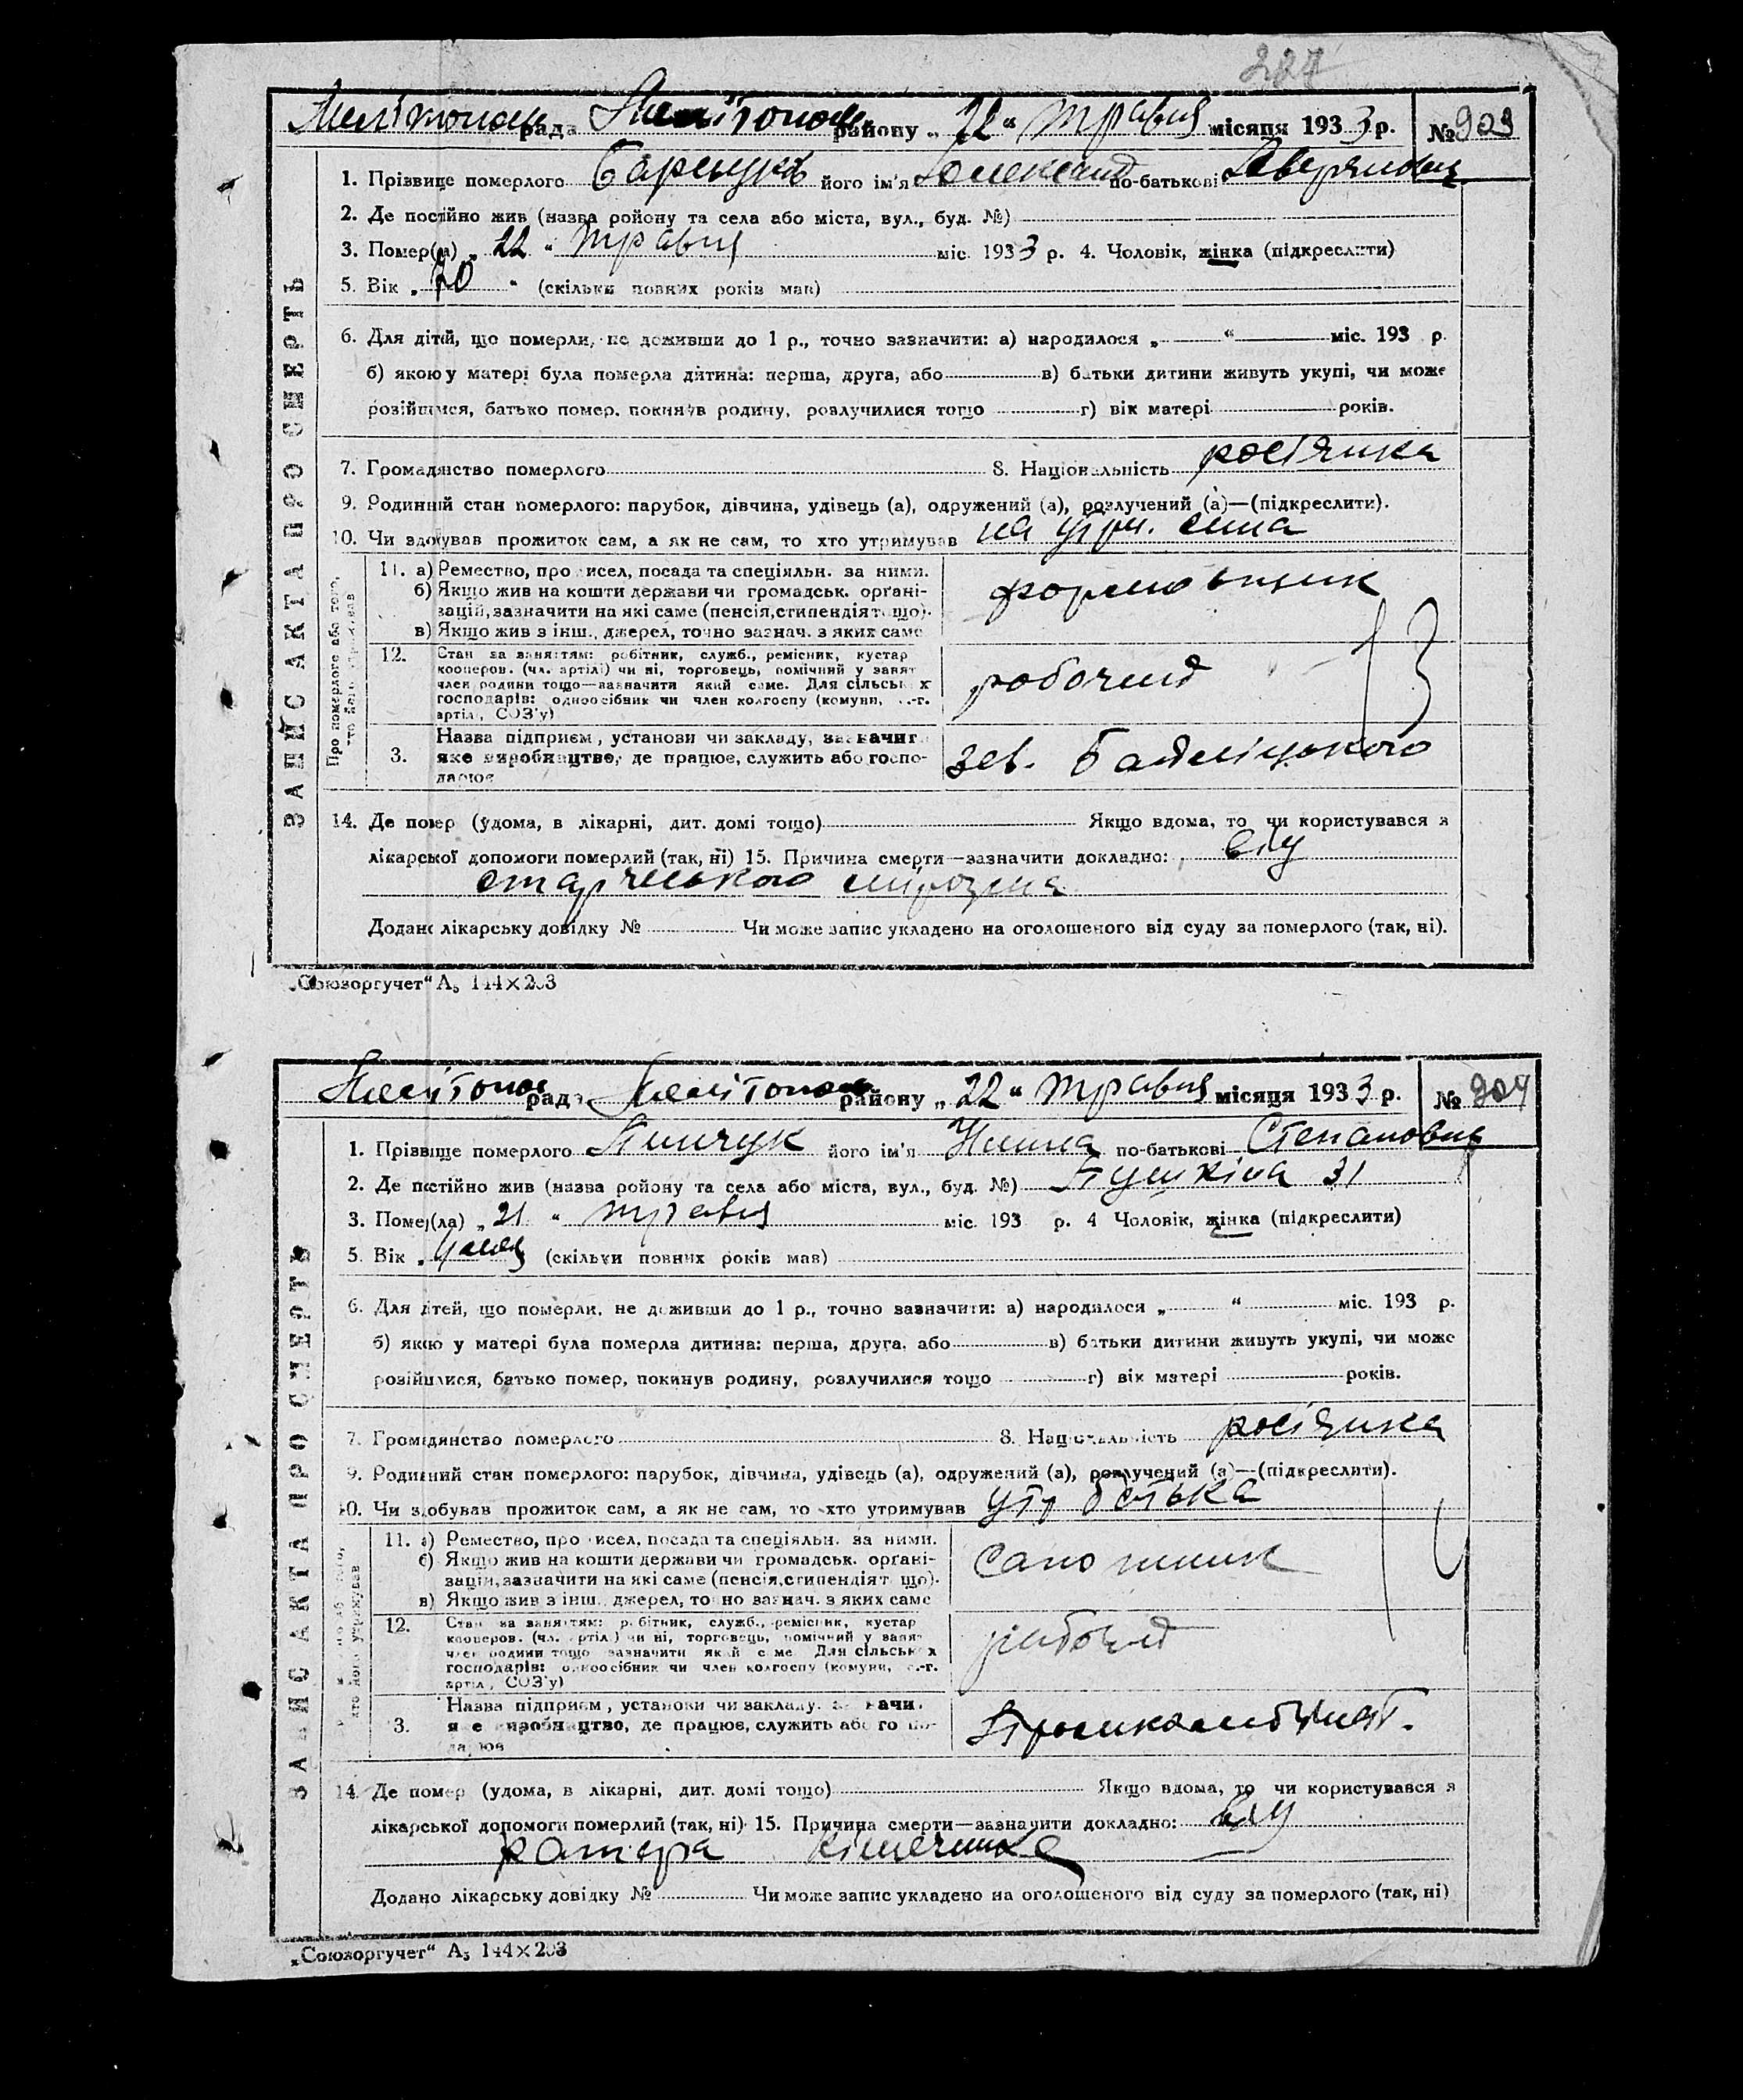 227
Мелітополь рада Мелітополь району „22“ травня місяця 1933 р. № 903
ЗАПИС АКТА ПРО СМЕРТЬ
1. Прізвище померлого його ім'я по-батькові
2. Де постійно жив (назва ройону та села або міста, вул., буд. №)
3. Помер(ла) „22“ травня міс. 1933 р. 4. Чоловік, жінка (підкреслити)
5. Вік „70“ (скільки повних років мав)
6. Для дітей, що померли, не доживши до 1 р., точно зазначити: а) народилося „ “ міс. 193 р.
б) якою у матері була померла дитина: перша, друга, або в) батьки дитини живуть укупі, чи може
розійшлися, батько помер, покинув родину, розлучилися тощо г) вік матері років.
7. Громадянство померлого 8. Національність росіянка
9. Родинний стан померлого: парубок, дівчина, удівець (а), одружений (а), розлучений (а)—(підкреслити).
10. Чи здобував прожиток сам, а як не сам, то хто утримував на утрм. сина
Про померлого або того, хто його утримував
11. а) Ремество, промисел, посада та спеціяльн. за ними.
б) Якщо жив на кошти держави чи громадськ. органі-
зацій, зазначити на які саме (пенсія, стипендія тощо).
в) Якщо жив з інш., джерел, точно зазнач. з яких саме
формовщик
12. Стан за заняттям: робітник, служб., ремісник, кустар
кооперов. (чл. артілі) чи ні, торговець, помічний у занят
член родини тощо—зазначити який саме. Для сільських
господарів: одноосібник чи член колгоспу (комуни, с.-г.
артіл, СОЗ'у)
робочий
13
3. Назва підприєм, установи чи закладу, зазначити
яке виробництво, де працює, служить або госпо-
дарює
зав.
14. Де помер (удома, в лікарні, дит. домі тощо) Якщо вдома, то чи користувався з
лікарської допомоги померлий (так, ні) 15. Причина смерти—зазначити докладно: від
старчеського
Додано лікарську довідку № Чи може запис укладено на оголошеного від суду за померлого (так, ні).
„Союзоргучет“ А₅ 144×203
Мелітополь рада Мелітополь району „22“ травня місяця 1933 р. № 904
ЗАПИС АКТА ПРО СМЕРТЬ
1. Прізвище померлого Пинчук його ім'я Нина по-батькові Степановна
2. Де постійно жив (назва ройону та села або міста, вул., буд. №) Пушкіна 31
3. Помер(ла) „21“ травня міс. 193 р. 4 Чоловік, жінка (підкреслити)
5. Вік (скільки повних років мав)
6. Для дітей, що померли, не доживши до 1 р., точно зазначити: а) народилося „ “ міс. 193 р.
б) якою у матері була померла дитина: перша, друга, або в) батьки дитини живуть укупі, чи може
розійшлися, батько помер, покинув родину, розлучилися тощо г) вік матері років.
7. Громадянство померлого 8. Національність росіянка
9. Родинний стан померлого: парубок, дівчина, удівець (а), одружений (а), розлучений (а)—(підкреслити).
10. Чи здобував прожиток сам, а як не сам, то хто утримував утр батька
11. а) Ремество, промисел, посада та спеціяльн. за ними.
б) Якщо жив на кошти держави чи громадськ. органі-
зацій, зазначити на які саме (пенсія, стипендія тощо).
в) Якщо жив з інш., джерел, точно зазнач. з яких саме
сапожник
12. Стан за заняттям: робітник, служб., ремісник, кустар
кооперов. (чл. артілі) чи ні, торговець, помічний у занят
член родини тощо зазначити який саме Для сільських
господарів: одноосібник чи член колгоспу (комуни, с.-г.
артіл, СОЗ'у)
робочий
3. Назва підприєм, установи чи закладу, зазначи.
яке виробництво, де працює, служить або госпо-
дарює
Промкомбінат.
14. Де помер (удома, в лікарні, дит. домі тощо) Якщо вдома, то чи користувався з
лікарської допомоги померлий (так, ні) 15. Причина смерти—зазначити докладно: від
катара кішечника
Додано лікарську довідку № Чи може запис укладено на оголошеного від суду за померлого (так, ні)
„Союзоргучет“ А₅ 144×203